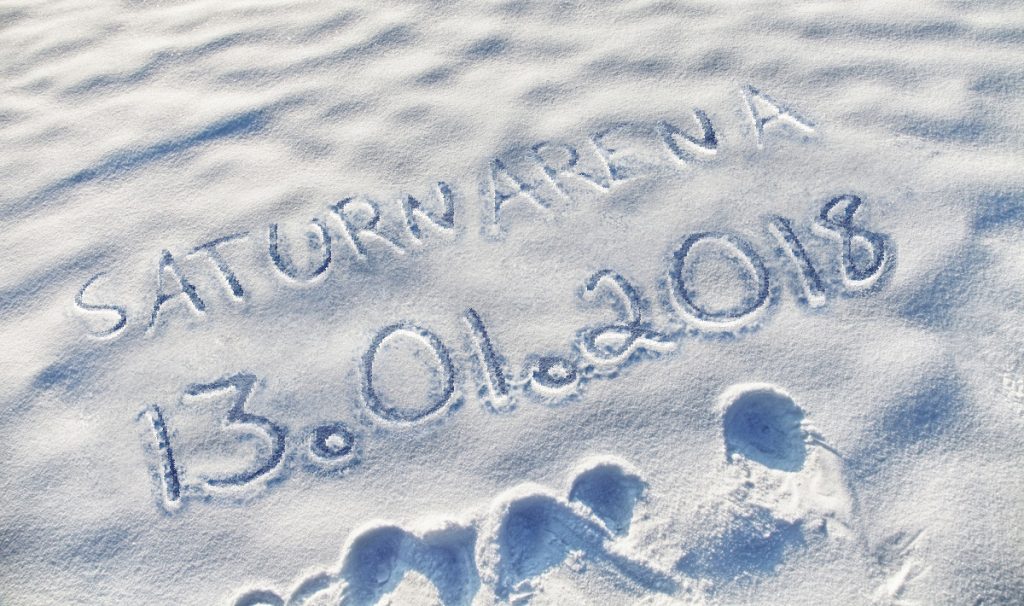 SATURN ARENA
13.01.2018